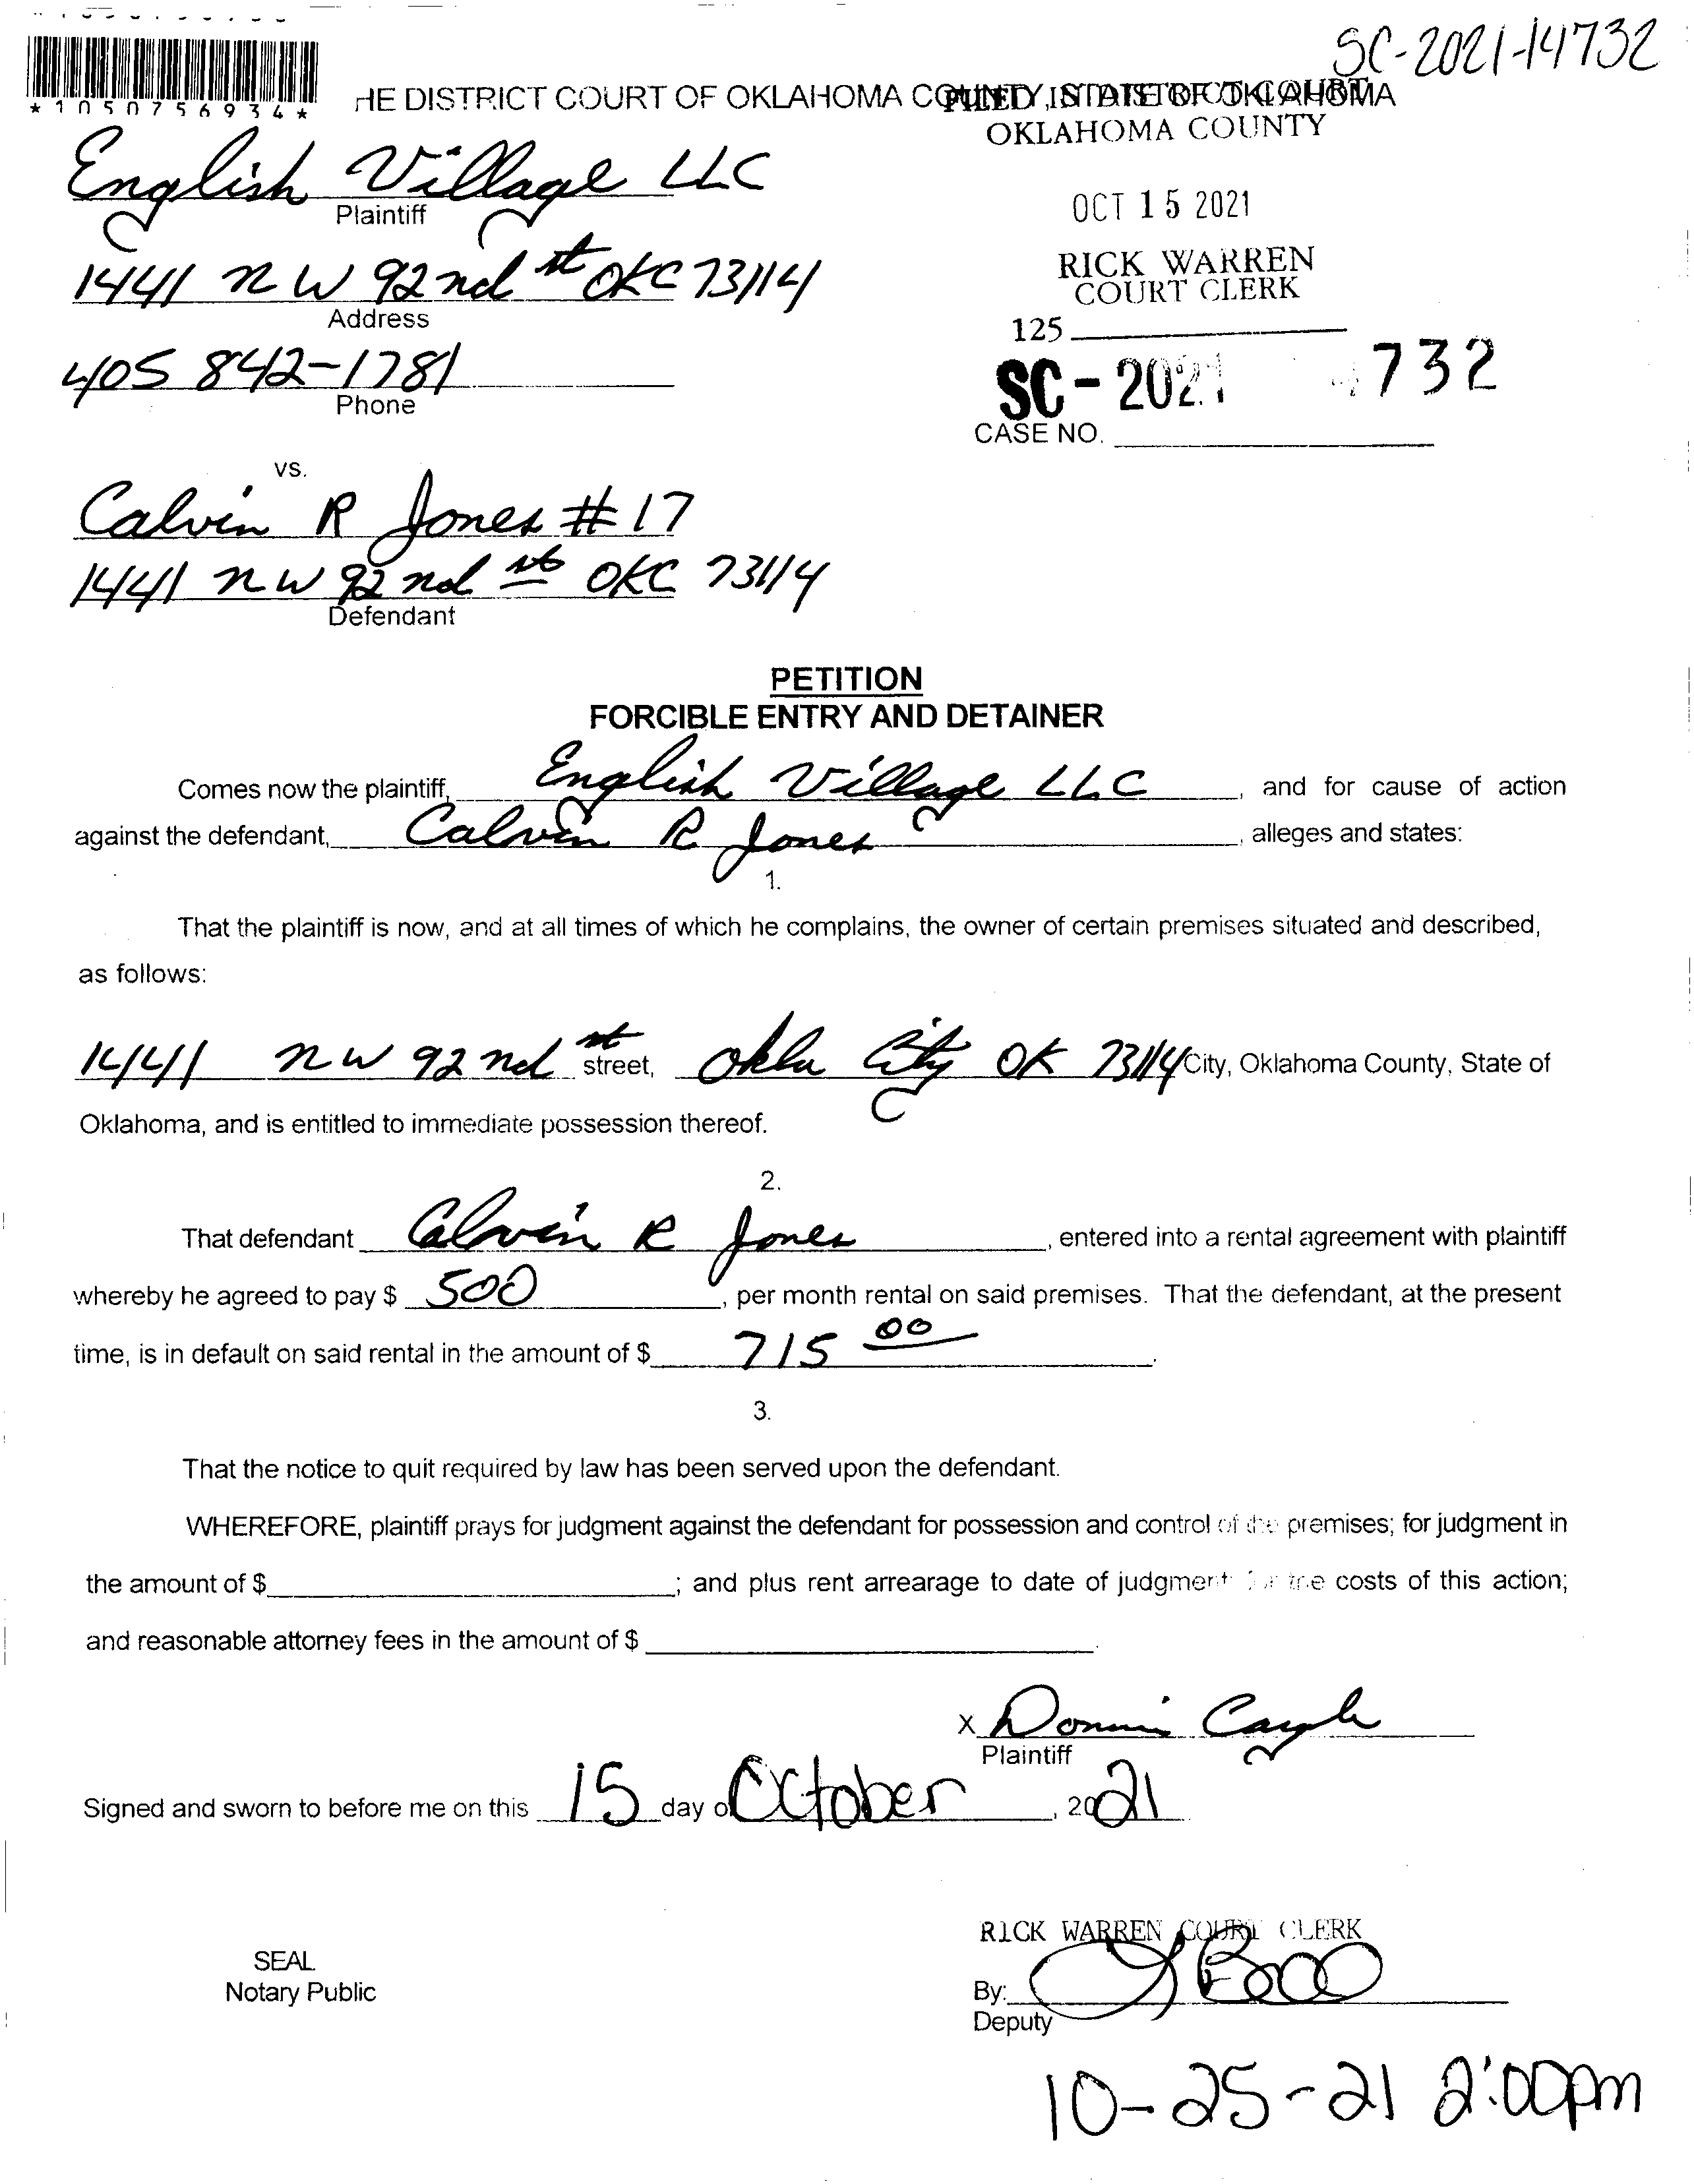 SC-2021-14732
*1050756934*
HE DISTRICT COURT OF OKLAHOMA COUNTY, STATE OF OKLAHOMA
FILED IN DISTRICT COURT
OKLAHOMA COUNTY
English Village LLC
Plaintiff
OCT 15 2021
1441 NW 92nd st OKC 73114
Address
RICK WARREN
COURT CLERK
125
405 842-1781
Phone
SC-2021 4732
CASE NO.
vs.
Calvin R Jones #17
1441 NW 92nd st OKC 73114
Defendant
PETITION
FORCIBLE ENTRY AND DETAINER
Comes now the plaintiff, English Village LLC, and for cause of action
against the defendant, Calvin R Jones, alleges and states:
1.
That the plaintiff is now, and at all times of which he complains, the owner of certain premises situated and described,
as follows:
1441 NW 92nd st street, Okla City OK 73114 City, Oklahoma County, State of
Oklahoma, and is entitled to immediate possession thereof.
2.
That defendant Calvin R Jones, entered into a rental agreement with plaintiff
whereby he agreed to pay $ 500, per month rental on said premises. That the defendant, at the present
time, is in default on said rental in the amount of $ 715 00.
3.
That the notice to quit required by law has been served upon the defendant.
WHEREFORE, plaintiff prays for judgment against the defendant for possession and control of the premises; for judgment in
the amount of $ ; and plus rent arrearage to date of judgment for the costs of this action;
and reasonable attorney fees in the amount of $ .
X Donnie
Plaintiff
Signed and sworn to before me on this 15 day of October, 2021
RICK WARREN COURT CLERK
SEAL
Notary Public
By:
Deputy
10-25-21 2:00pm